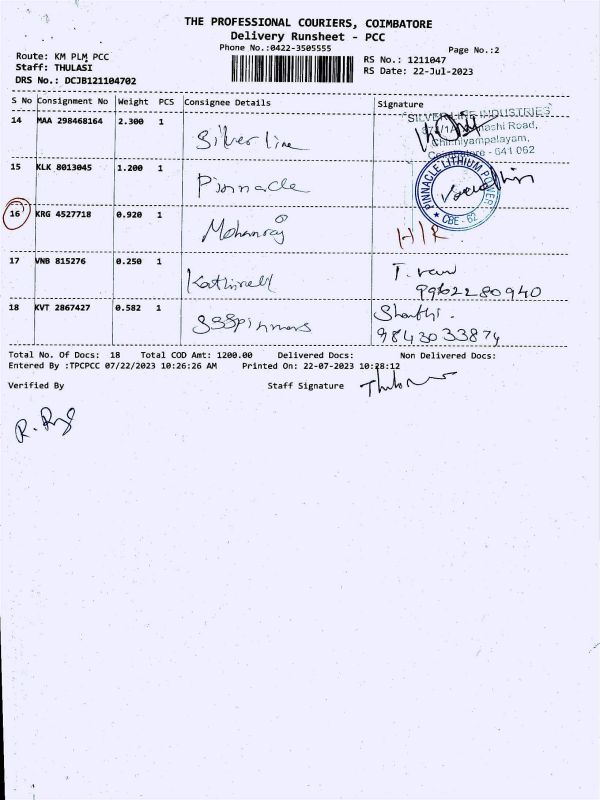 THE PROFESSIONAL COURIERS, COIMBATORE
Delivery Runsheet - PCC
Phone No.:0422-3505555
Page No.:2
Route: KM PLM PCC
Staff: THULASI
DRS No.: DCJB121104702
RS No.: 1211047
RS Date: 22-Jul-2023
S No Consignment No Weight PCS Consignee Details Signature
14 MAA 298468164 2.300 1 Silver line
SILVER LINE INDUSTRIES
Road,
Chinniyampalayam,
Coimbatore - 641 062
15 KLK 8013045 1.200 1 Pinnacle
PINNACLE LITHIUM POWER
★ CBE - 62
16 KRG 4527718 0.920 1 Mohanraj H/R
17 VNB 815276 0.250 1 T.
9962280940
18 KVT 2867427 0.582 1 SSSpinners Shanthi.
9843033874
Total No. Of Docs: 18 Total COD Amt: 1200.00 Delivered Docs: Non Delivered Docs:
Entered By :TPCPCC 07/22/2023 10:26:26 AM Printed On: 22-07-2023 10:28:12
Verified By Staff Signature